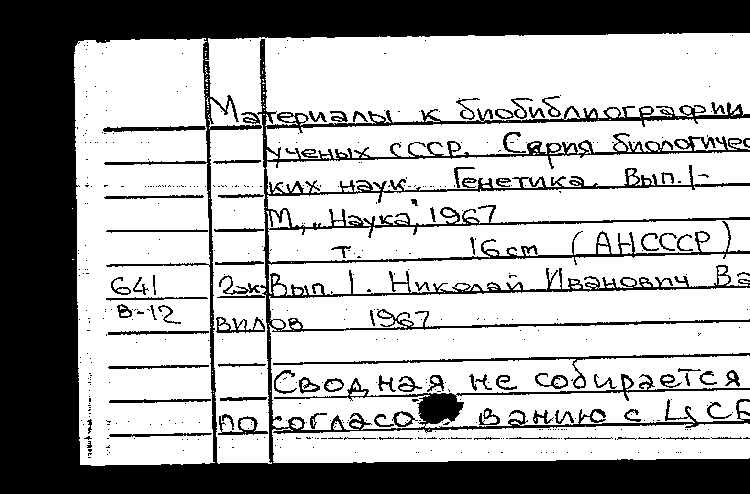 Материалы к биобиблиографии
ученых СССР. Серия биологичес
ких наук. Генетика. Вып. 1-
М., „Наука", 1967
т. 16 cm (АНСССР)
641 2эк Вып. 1. Николай Иванович Ва
В-12 вилов 1967
Сводная не собирается
по согласованию с ЦСБ